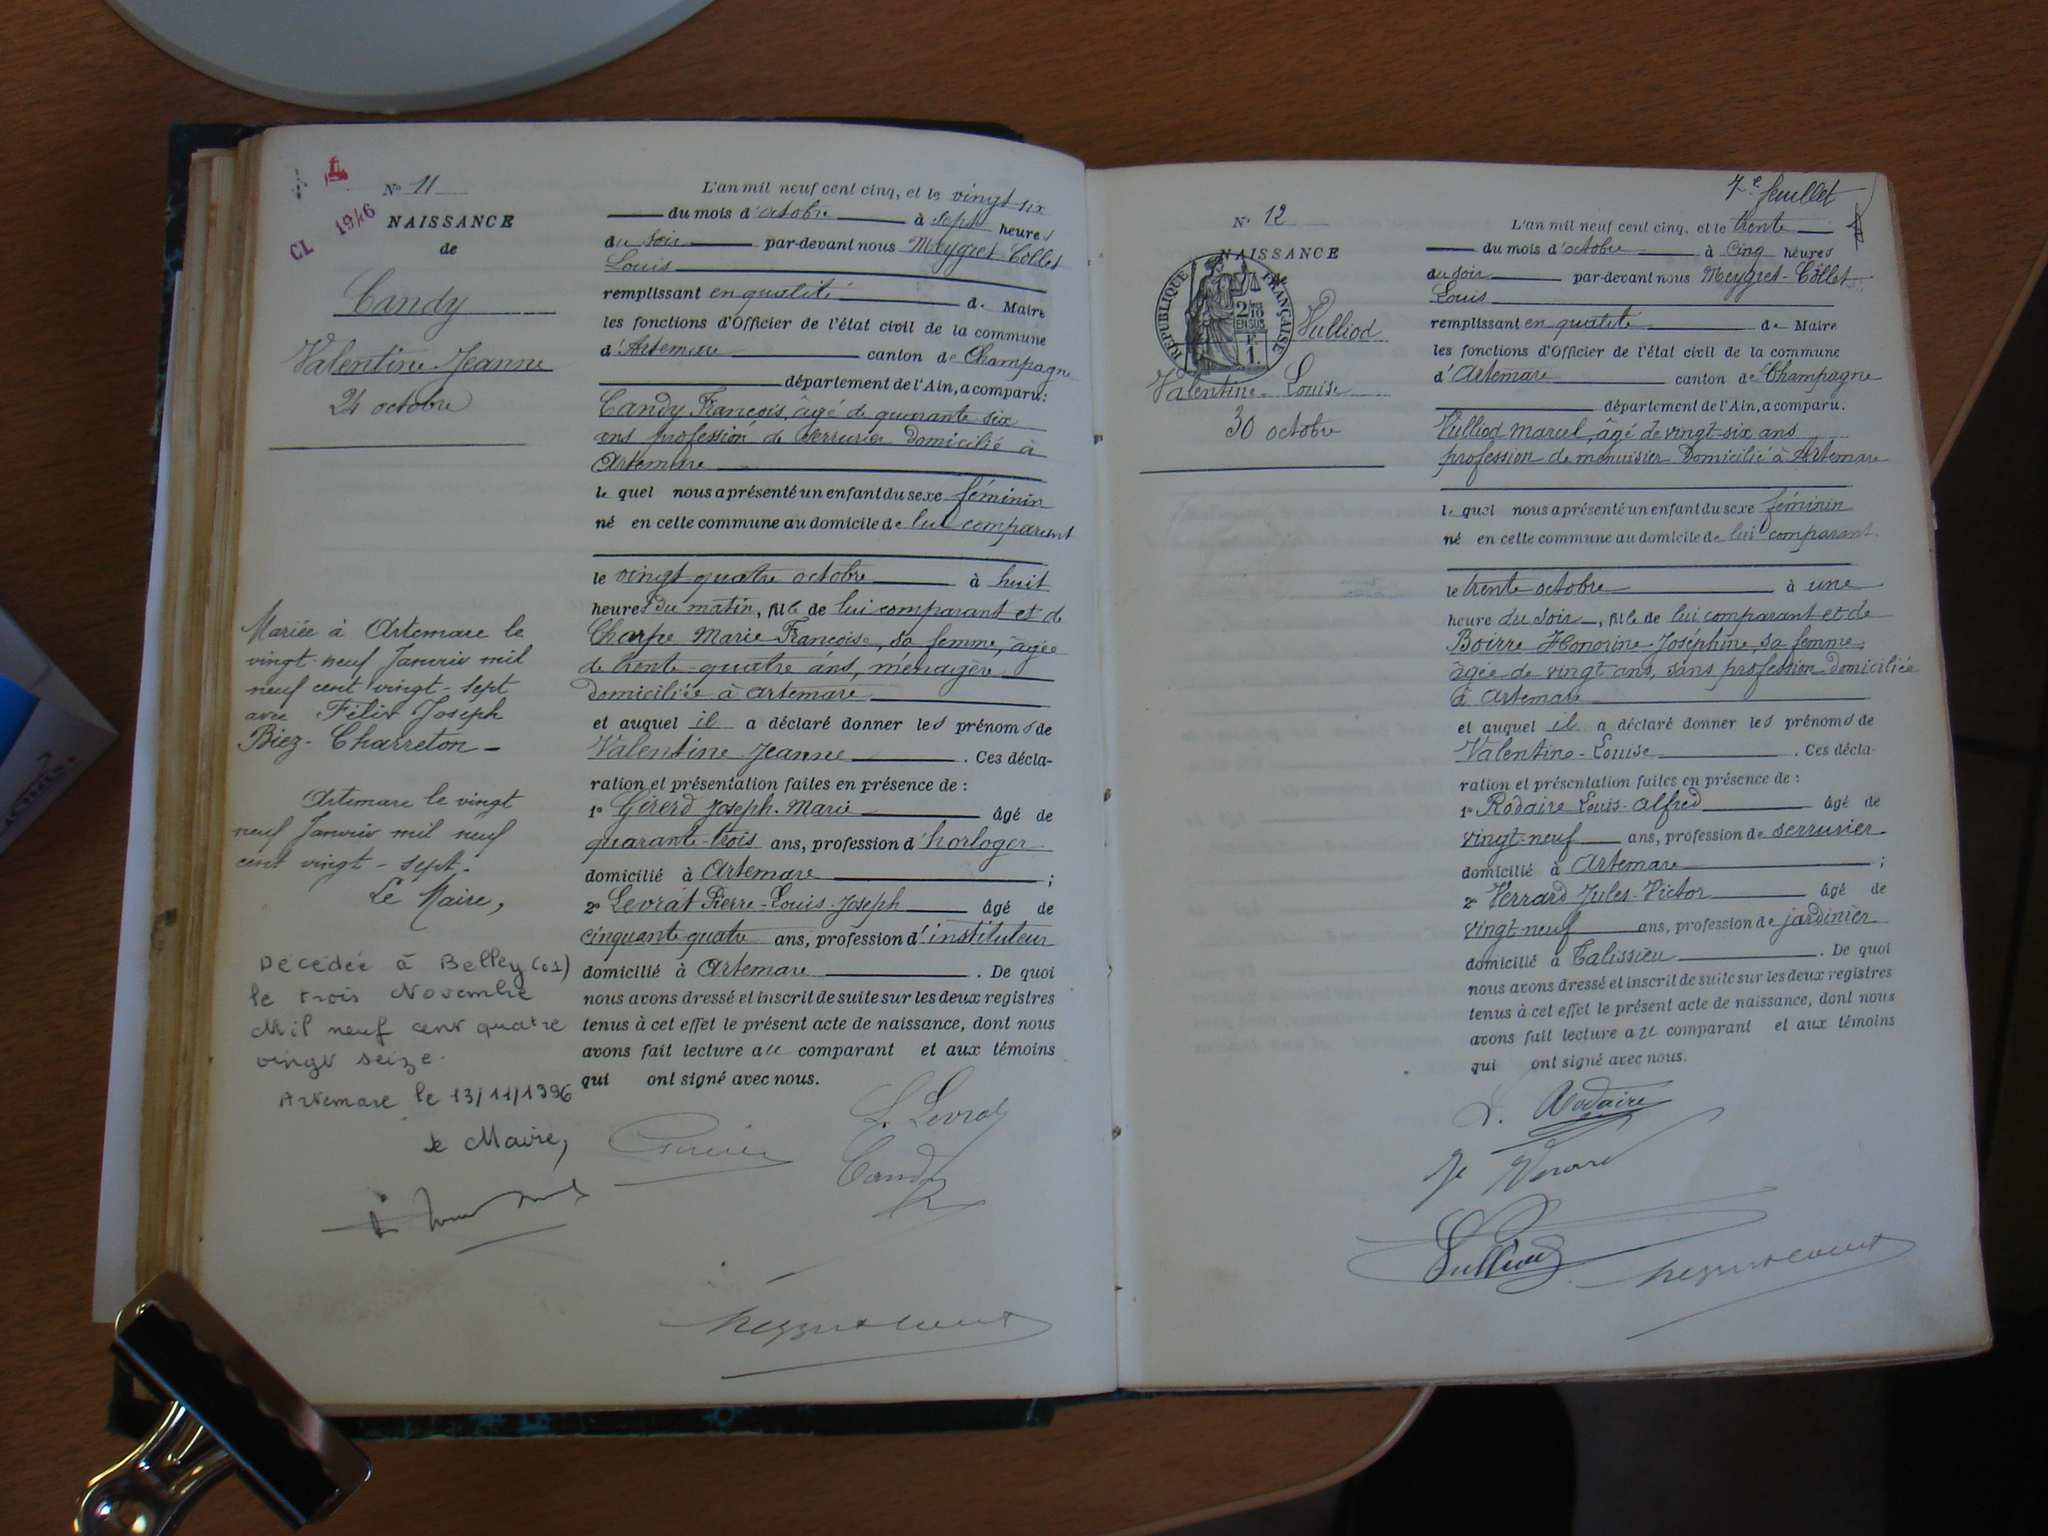 N° 11
CL 1946
NAISSANCE
de
Candy
Valentine-Jeanne
24 octobre
Mariée à Artemare le
vingt-neuf Janvier mil
neuf cent vingt-sept
avec Félix Joseph
Biez-Charreton -
Artemare le vingt
neuf Janvier mil neuf
cent vingt-sept.
Le Maire,
Décédée à Belley (01)
le trois Novembre
Mil neuf cent quatre
vingt seize.
Artemare le 13/11/1996
Le Maire,
L'an mil neuf cent cinq, et le vingt-six
du mois d'octobre à sept heures
du soir par-devant nous Meygret-Collet
Louis
remplissant en qualité de Maire
les fonctions d'Officier de l'état civil de la commune
d'Artemare canton de Champagne
département de l'Ain, a comparu:
Candy François, âgé de quarante-six
ans profession de serrurier domicilié à
Artemare
lequel nous a présenté un enfant du sexe féminin
né en cette commune au domicile de lui comparant
le vingt-quatre octobre à huit
heures du matin, fille de lui comparant et de
Charpe Marie Françoise, sa femme, âgée
de trente-quatre ans, ménagère
domiciliée à Artemare
et auquel il a déclaré donner les prénoms de
Valentine-Jeanne. Ces décla-
ration et présentation faites en présence de :
1° Girerd Joseph-Marie âgé de
quarante-trois ans, profession d'horloger
domicilié à Artemare ;
2° Levrat Pierre-Louis-Joseph âgé de
cinquante-quatre ans, profession d'instituteur
domicilié à Artemare. De quoi
nous avons dressé et inscrit de suite sur les deux registres
tenus à cet effet le présent acte de naissance, dont nous
avons fait lecture au comparant et aux témoins
qui ont signé avec nous.
L. Levrat
Candy
7e feuillet
N° 12
NAISSANCE
RÉPUBLIQUE FRANÇAISE
2/10 EN SUS
F. 1.
Vulliod
Valentine-Louise
30 octobre
L'an mil neuf cent cinq, et le trente
du mois d'octobre à cinq heures
du soir par-devant nous Meygret-Collet
Louis
remplissant en qualité de Maire
les fonctions d'Officier de l'état civil de la commune
d'Artemare canton de Champagne
département de l'Ain, a comparu.
Vulliod Marcel, âgé de vingt-six ans
profession de menuisier Domicilié à Artemare
lequel nous a présenté un enfant du sexe féminin
né en cette commune au domicile de lui comparant
le trente octobre à une
heure du soir, fille de lui comparant et de
Boirre Honorine-Joséphine sa femme,
âgée de vingt ans, sans profession domiciliée
à Artemare
et auquel il a déclaré donner les prénoms de
Valentine-Louise. Ces décla-
ration et présentation faites en présence de :
1° Rodaire Louis-Alfred âgé de
vingt-neuf ans, profession de serrurier
domicilié à Artemare ;
2° Verrard Jules-Victor âgé de
vingt-neuf ans, profession de jardinier
domicilié à Talissieu. De quoi
nous avons dressé et inscrit de suite sur les deux registres
tenus à cet effet le présent acte de naissance, dont nous
avons fait lecture au comparant et aux témoins
qui ont signé avec nous.
L. Rodaire
Vulliod